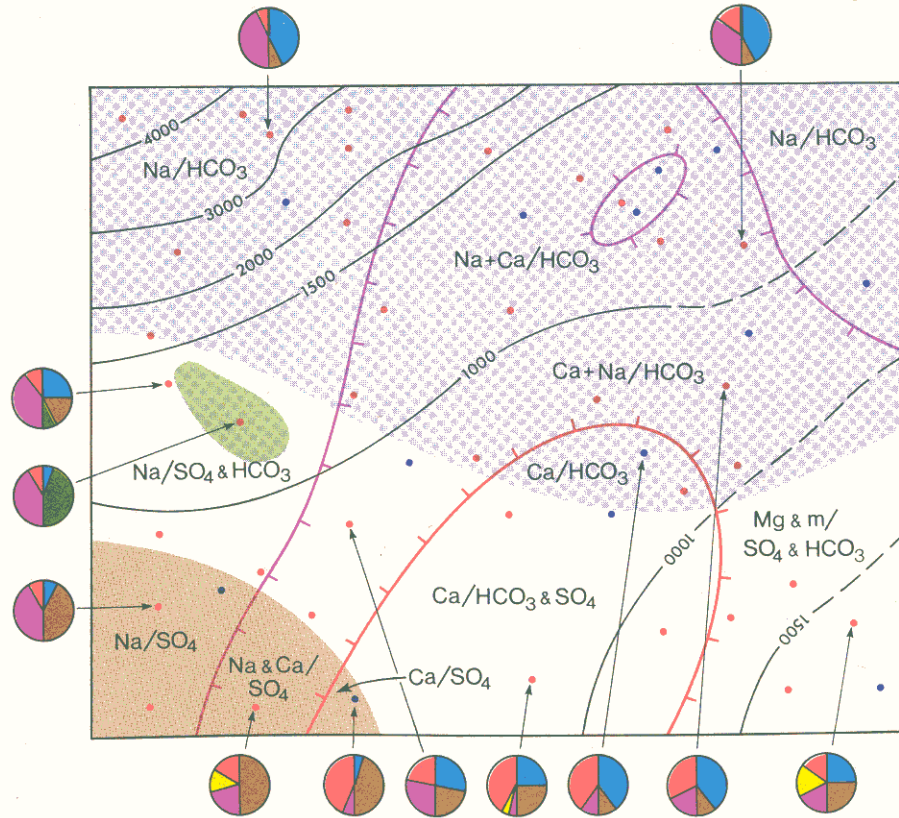 4000
Na/HCO₃
3000
2000
1500
Na/HCO₃
Na+Ca/HCO₃
1000
Ca+Na/HCO₃
Na/SO₄ & HCO₃
Ca/HCO₃
Mg & m/
SO₄ & HCO₃
1000
1500
Ca/HCO₃ & SO₄
Na/SO₄
Na & Ca/
SO₄
Ca/SO₄